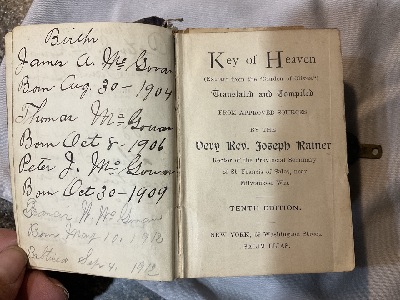 Births
James A. McGowan
Born Aug. 30 - 1904
Thomas McGowan
Born Oct 8 - 1906
Peter J. McGowan
Born Oct 30 - 1909
W. McGowan
Born May 10, 1912
Sep 4, 1912
Key of Heaven
Translated and Compiled
FROM APPROVED SOURCES
BY THE
Very Rev. Joseph Rainer
Rector of the Provincial Seminary
of St. Francis of Sales, near
Milwaukee, Wis.
TENTH EDITION.
NEW YORK, Washington Street